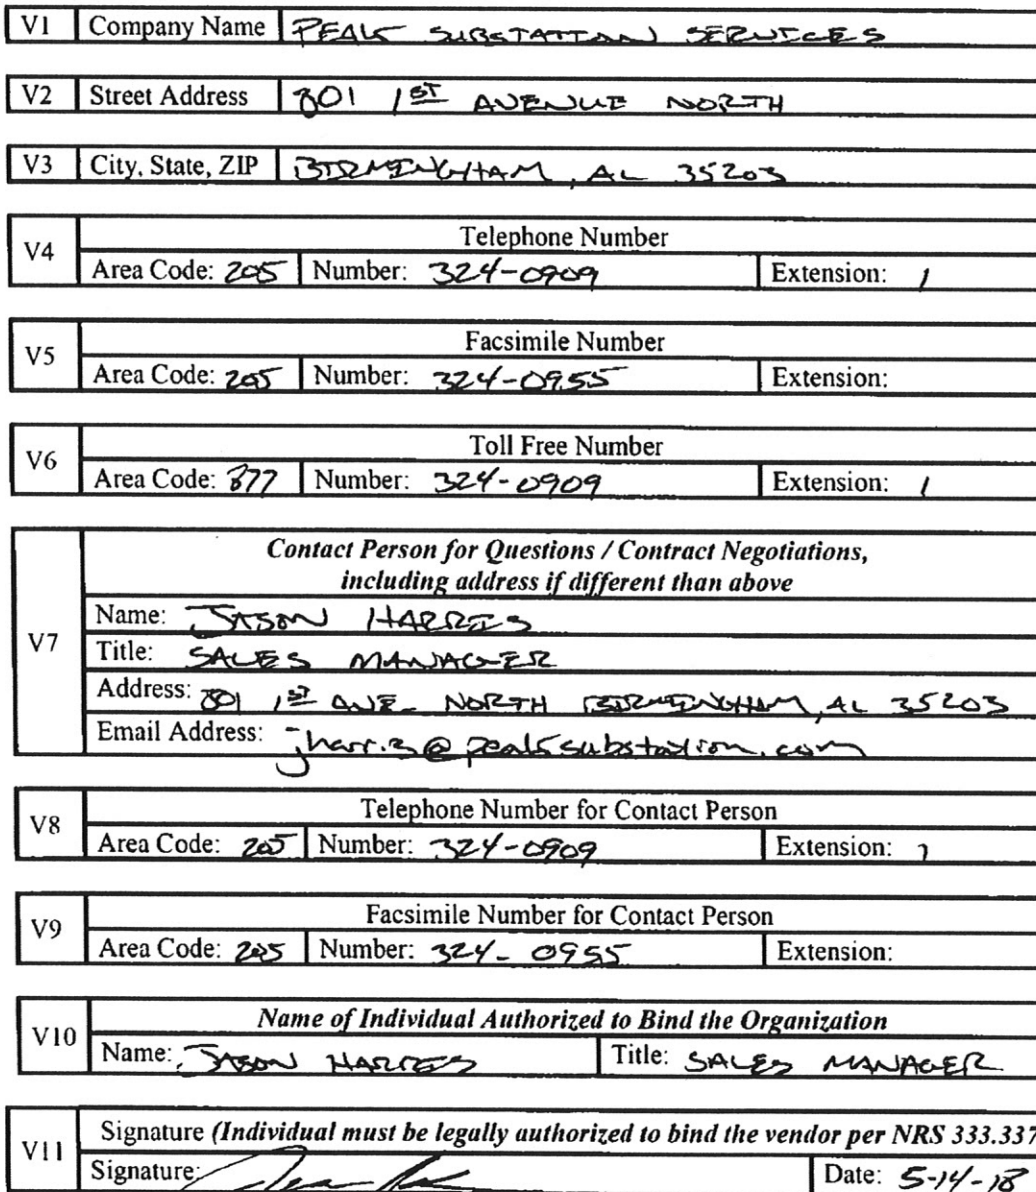 V1 Company Name PEAK SUBSTATION SERVICES
V2 Street Address 801 1ST AVENUE NORTH
V3 City, State, ZIP BIRMINGHAM, AL 35203
V4 Telephone Number
Area Code: 205 Number: 324-0909 Extension: 1
V5 Facsimile Number
Area Code: 205 Number: 324-0955 Extension:
V6 Toll Free Number
Area Code: 877 Number: 324-0909 Extension: 1
V7 Contact Person for Questions / Contract Negotiations,
including address if different than above
Name: JASON HARRIS
Title: SALES MANAGER
Address: 801 1ST AVE. NORTH BIRMINGHAM, AL 35203
Email Address: jharris@peaksubstation.com
V8 Telephone Number for Contact Person
Area Code: 205 Number: 324-0909 Extension: 1
V9 Facsimile Number for Contact Person
Area Code: 205 Number: 324-0955 Extension:
V10 Name of Individual Authorized to Bind the Organization
Name: JASON HARRIS Title: SALES MANAGER
V11 Signature (Individual must be legally authorized to bind the vendor per NRS 333.337
Signature: Date: 5-14-18